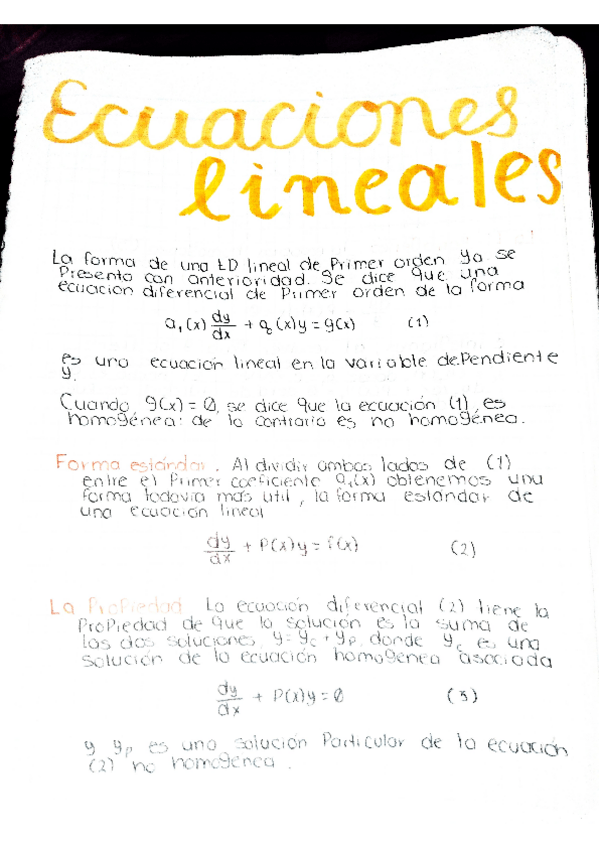 Ecuaciones
lineales
La forma de una ED lineal de Primer orden ya se
Presento con anterioridad. Se dice que una
ecuación diferencial de Primer orden de la forma
a₁(x) dy/dx + a₀(x)y = g(x) (1)
es una ecuación lineal en la variable dePendiente
y.
Cuando, g(x) = 0, se dice que la ecuación (1), es
homogénea: de lo contrario es no homogénea.
Forma estándar. Al dividir ambos lados de (1)
entre el Primer coeficiente a₁(x) obtenemos una
forma todavía mas util, la forma estandar de
una ecuación lineal
dy/dx + P(x)y = f(x) (2)
La ProPiedad La ecuación diferencial (2) tiene la
ProPiedad de que la solución es la suma de
las dos soluciones, y = yc + yp donde yc es una
solución de la ecuación homogenea asociada
dy/dx + P(x)y = 0 (3)
y yp es una solución Particular de la ecuación
(2) no homogénea.